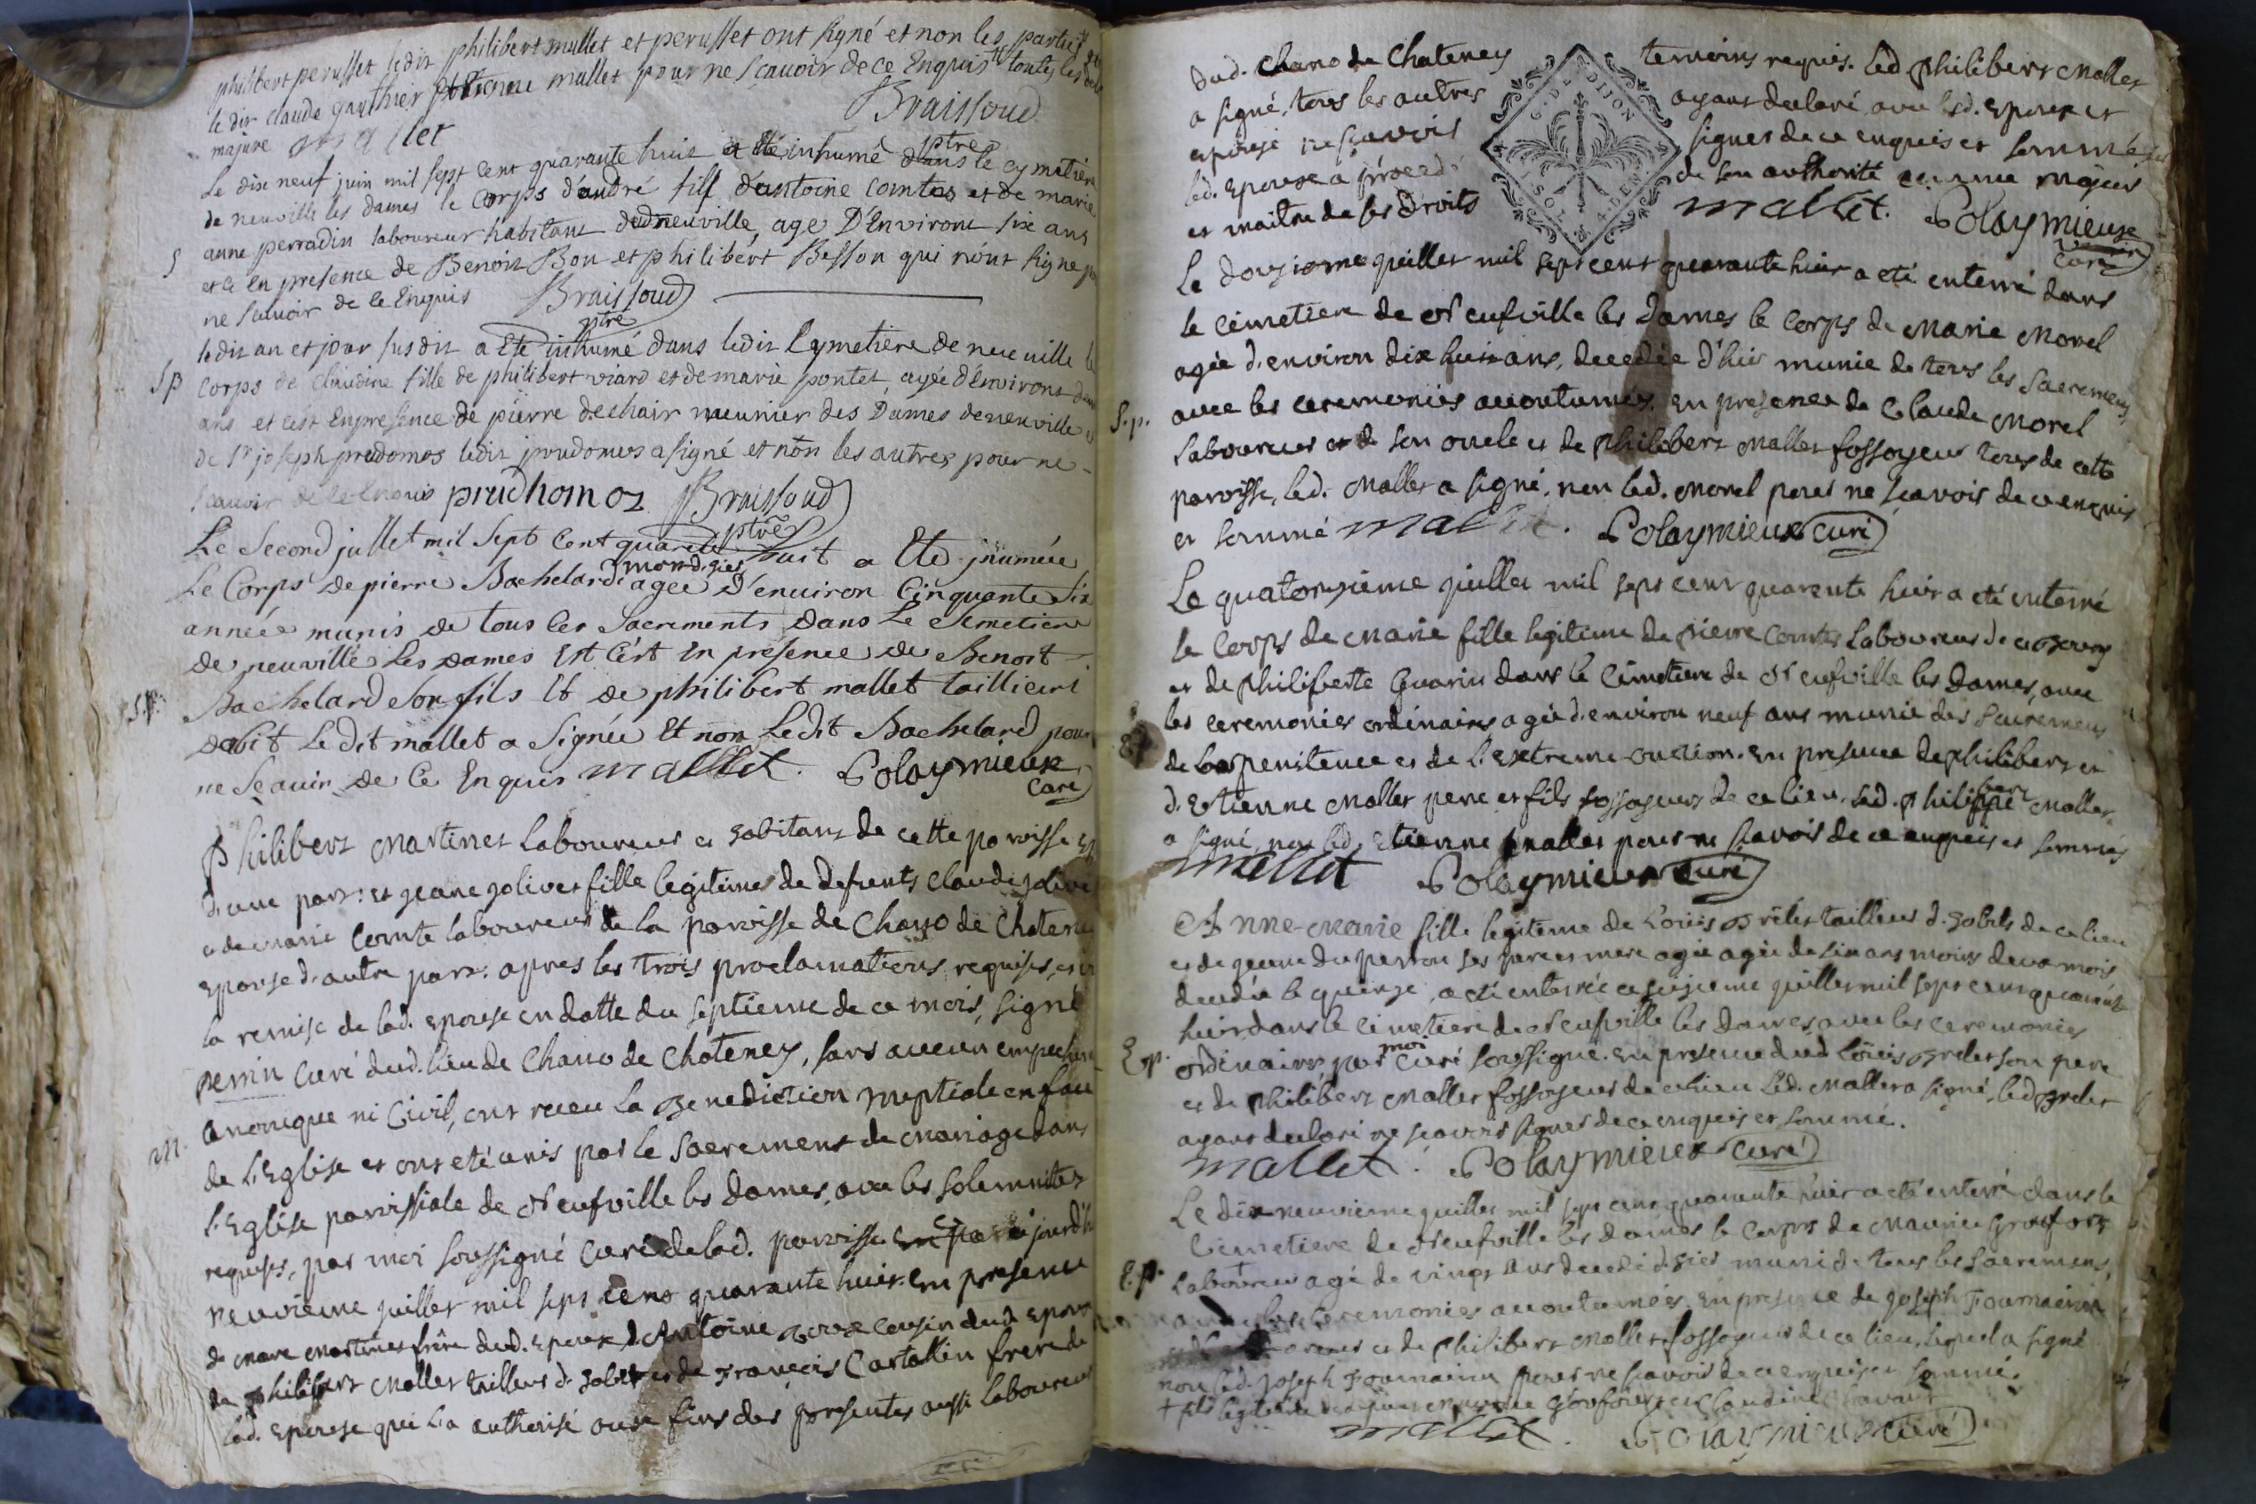 philibert perusset ledit philibert mallet et perusset ont signé et non les parties
le dit claude gauthier etienne mallet pour ne sçavoir de ce Enquis toutes les deux
majure mallet Braissoud
ptre
Le dix neuf juin mil sept cent quarante huit a été inhumé dans le cymetière
de neuville les dames le corps d'andré fils d'antoine comtes et de marie
anne perradin laboureur habitant dud neuville, age D'Environt six ans
S
et ce En presence de Benoit Bon et philibert Besson qui n'ont signe pr
ne scavoir de ce Enquis Braissoud
ptre
ledit an et jour susdit a Eté inhumé dans ledit Cymetière de neuville le
Sp
corps de claudine fille de philibert viard et de marie pontet, agée d'Environt deux
ans et cest En presence de pierre dechair meunier des Dames de neuville et
de Sr joseph prudomos ledit prudomos a signé et non les autres pour ne
scavoir de ce Enquis prudhomoz Braissoud
ptre
Le Second jullet mil Sept Cent quarete huit a Ete jnumée
Le Corps de pierre Bachelard agee D'environ Cinquante Six
année munis de tous les Sacrements dans Le Semetiere
de neuville les dames Est Cest En présence de Benoit
S.p.
Bachelard Son fils Et de philibert mallet taillieur
dabit Le dit mallet a Signée Et non Ledit Bachelard pour
ne Scauir de Ce Enquis mallet. Polaymieux
Curé
Philibert Martinet Laboureur et habitant de cette paroisse Ep
d'une part: et jeane jolivet fille legitime de defunts Claude jolivet
et de marie Comte laboureur de la paroisse de Chano de Chateney
Epouse d'autre part: apres les Trois proclamations requises, et vu
la remise de lad. Epouse en datte du septieme de ce mois, signé
perrin Curé dud. lieu de Chano de Chateney, sans aucun empeschem
M.
canonique ni Civil, ont recu La Benediction Nuptiale en face
de L'Eglise et ont eté unis par le Sacrement de Mariage dans
l'Eglise paroissiale de Neufville les Dames, avec les solemnitez
requises, par moi soussigné Curé de lad. paroisse aujourd'hu
neuvieme juillet mil sept cens quarante huit. En presence
de Marc Martinet frere dud. Epoux d'Antoine cousin dud. Epoux
de Philibert Mallet tailleur d. habit et de François Cartallin frere de
lad. Epouse qui L'a authorisé aux fins des presentes aussi laboureur
dud. Chano de Chateney temoins requis. Led. Philibert Mallet
a signé, tous les autres ayant declaré avec lesd. Epoux et
epouse ne scavoir signer de ce enquis et sommé
led. Epouse a procedé de son authorité comme majeur
et maitre de ses Droits mallet. Polaymieux
Curé
G. D. DIJON
SOL 4. DEN.
Le douzieme juillet mil sept cent quarante huit a eté enterré dans
le Cimetiere de Neufville les Dames le corps de Marie Morel
agée d'environ dix huit ans, decedée d'hier munie de tous les Sacremens
S.p.
avec les ceremonies accoutumées. En presence de Claude Morel
Laboureur et de son oncle et de Philibert Mallet fossoyeur tous de cette
paroisse, led. Mallet a signé, non led. Morel pour ne scavoir de ce enquis
et sommé mallet. Polaymieux curé
Le quatorzieme juillet mil sept cent quarante huit a eté enterré
le Corps de Marie fille legitime de Pierre Comtes Laboureur de
et de Philiberte Guarin dans le Cimetiere de Neufville les Dames, avec
les ceremonies ordinaires agée d'environ neuf ans munie des Sacremens
Ep
de la penitence et de L'Extreme-onction. En presence de Philibert et
d'Etienne Mallet pere et fils fossoyeurs de ce lieu. Led. Philibert Mallet
a signé, non led. Etienne Mallet pour ne scavoir de ce enquis et sommés
mallet Polaymieux curé
Anne-Marie fille legitime de Loüis Brelet tailleur d. habits de ce lieu
et de jeanne Duperron ses pere et mere agée agée de six ans moins deux mois
decedée le quinze, a eté enterrée ce seizieme juillet mil sept cens quarante
huit dans le Cimetiere de Neufville les Dames, avec les ceremonies
Ep.
ordinaires, par moi Curé soussigné. En presence dud. Loüis Brelet son pere
et de Philibert Mallet fossoyeur de ce lieu. Led. Mallet a signé, led. Brelet
ayant declaré ne scavoir signer de ce enquis et sommé.
mallet. Polaymieux curé
Le dix neuvieme juillet mil sept cens quarante huit a eté enterré dans le
Cimetiere de Neufville les Dames le Corps de Maurice
E.p.
Laboureur agé de vingt Ans decedé d'hier muni de tous les Sacremens,
avec les Ceremonies accoutumées. En presence de Joseph Fournainin
et de Philibert Mallet fossoyeur de ce lieu, lequel a signé
non led. joseph Fournainin pour ne scavoir de ce enquis et sommé.
+ fils legitime
mallet. Polaymieux curé